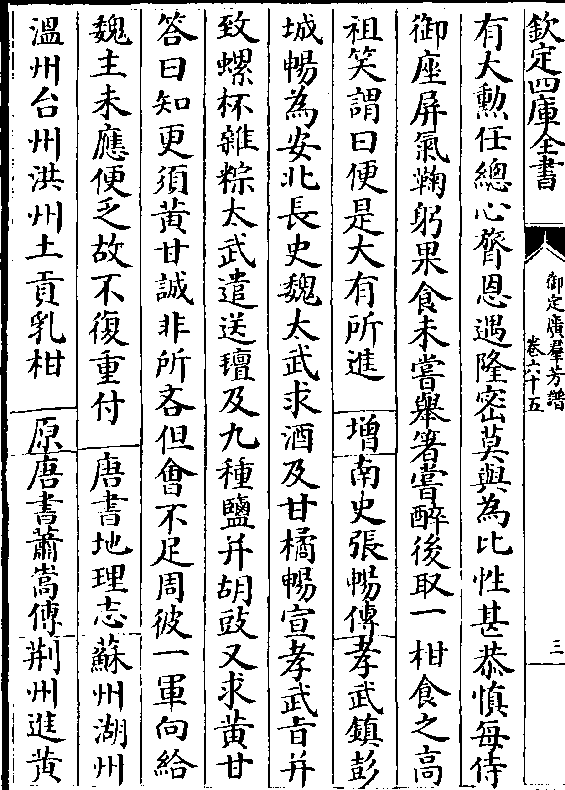 欽定四庫全書
御定廣羣芳譜
卷六十五
三
有大勲任總心膂恩遇隆密莫與為比性甚恭慎每侍
御座屏氣鞠躬果食未嘗舉箸嘗醉後取一柑食之高
祖笑謂曰便是大有所進 增南史張暢傳孝武鎮彭
城暢為安北長史魏太武求酒及甘橘暢宣孝武旨并
致螺杯雜粽太武遣送氊及九種鹽并胡豉又求黄甘
答曰知更須黄甘誠非所吝但會不足周彼一軍向給
魏主未應便乏故不復重付 唐書地理志蘇州湖州
溫州台州洪州土貢乳柑 原唐書蕭嵩傳荆州進黄